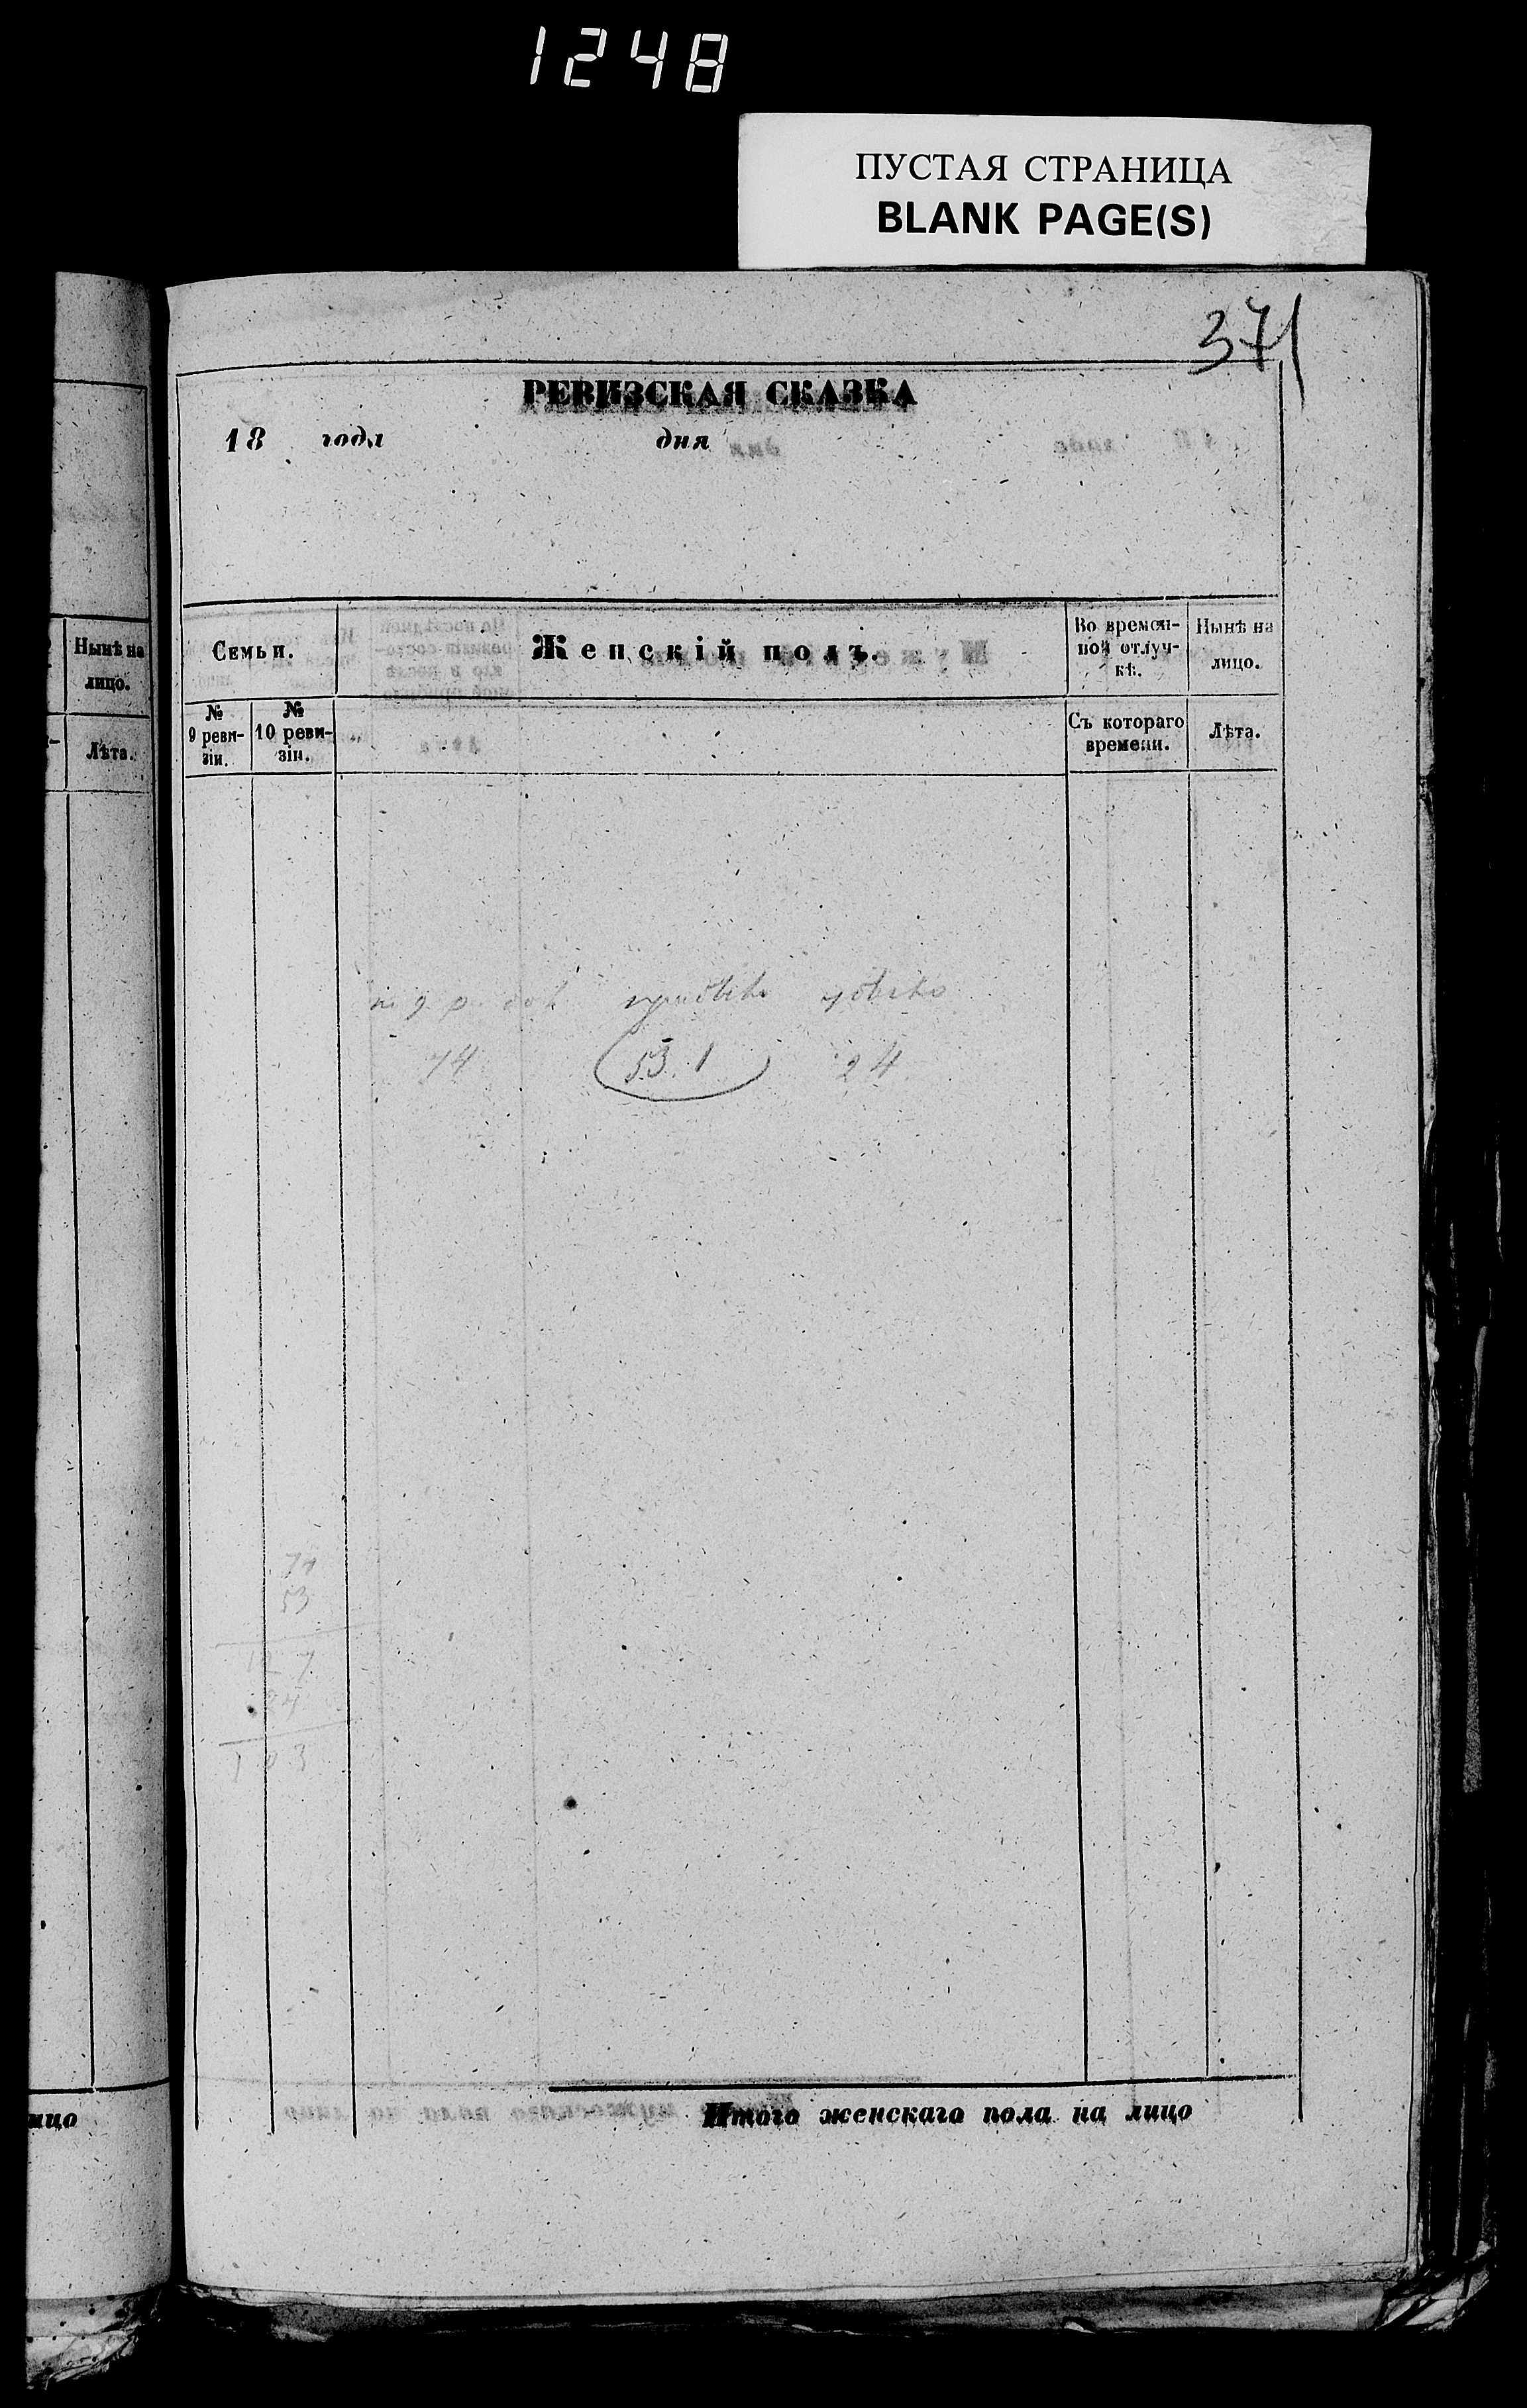 1248
ПУСТАЯ СТРАНИЦА
BLANK PAGE(S)
371
РЕВИЗСКАЯ СКАЗКА
18 года дня
Нынѣ на
лицо.
Лѣта.
Семьи.
Женскій полъ.
Во времен-
ной отлуч-
кѣ.
Нынѣ на
лицо.
№
9 реви-
зіи.
№
10 реви-
зіи.
Съ котораго
времени.
Лѣта.
74 53.1 24
53
Итого женскаго пола на лицо